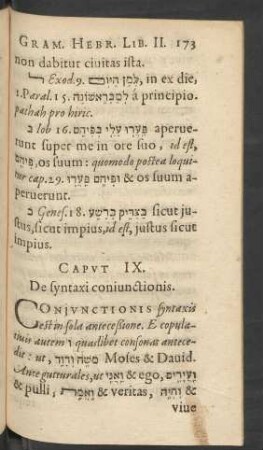 GRAM. HEBR. LIB. II. 173
non dabitur ciuitas ista.
Exod. 9. in ex die,
1. Paral. 15. לְמִבָּרִאשׁוֹנָה à principio.
pathah pro hiric.
ב Iob 16. פָּעֲרוּ עָלַי בְּפִיהֶם aperue-
runt super me in ore suo, id est,
פִּיהֶם, os suum: quomodo postea loqui-
tur cap. 29. וּפִיהֶם פָּעֲרוּ & os suum a-
peruerunt.
כ Genes. 18. כַּצַּדִּיק כָּרָשָׁע sicut ju-
stus, sicut impius, id est, justus sicut
impius.
CAPVT IX.
De syntaxi coniunctionis.
CONJVNCTIONIS syntaxis
est in sola antecessione. E copula-
tiuis autem ו quaslibet consonas antece-
dit: ut, מֹשֶׁה וְדָוִד Moses & Dauid.
Ante gutturales, ut וַאֲנִי & ego, וַעֲיָרִים
& pulli, וֶאֱמֶת & veritas, וִחְיֵה &
viue